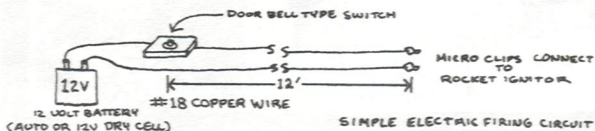 DOOR BELL TYPE SWITCH
MICRO CLIPS CONNECT
TO
ROCKET IGNITOR
12V
12'
#18 COPPER WIRE
12 VOLT BATTERY
(AUTO OR 12V DRY CELL)
SIMPLE ELECTRIC FIRING CIRCUIT